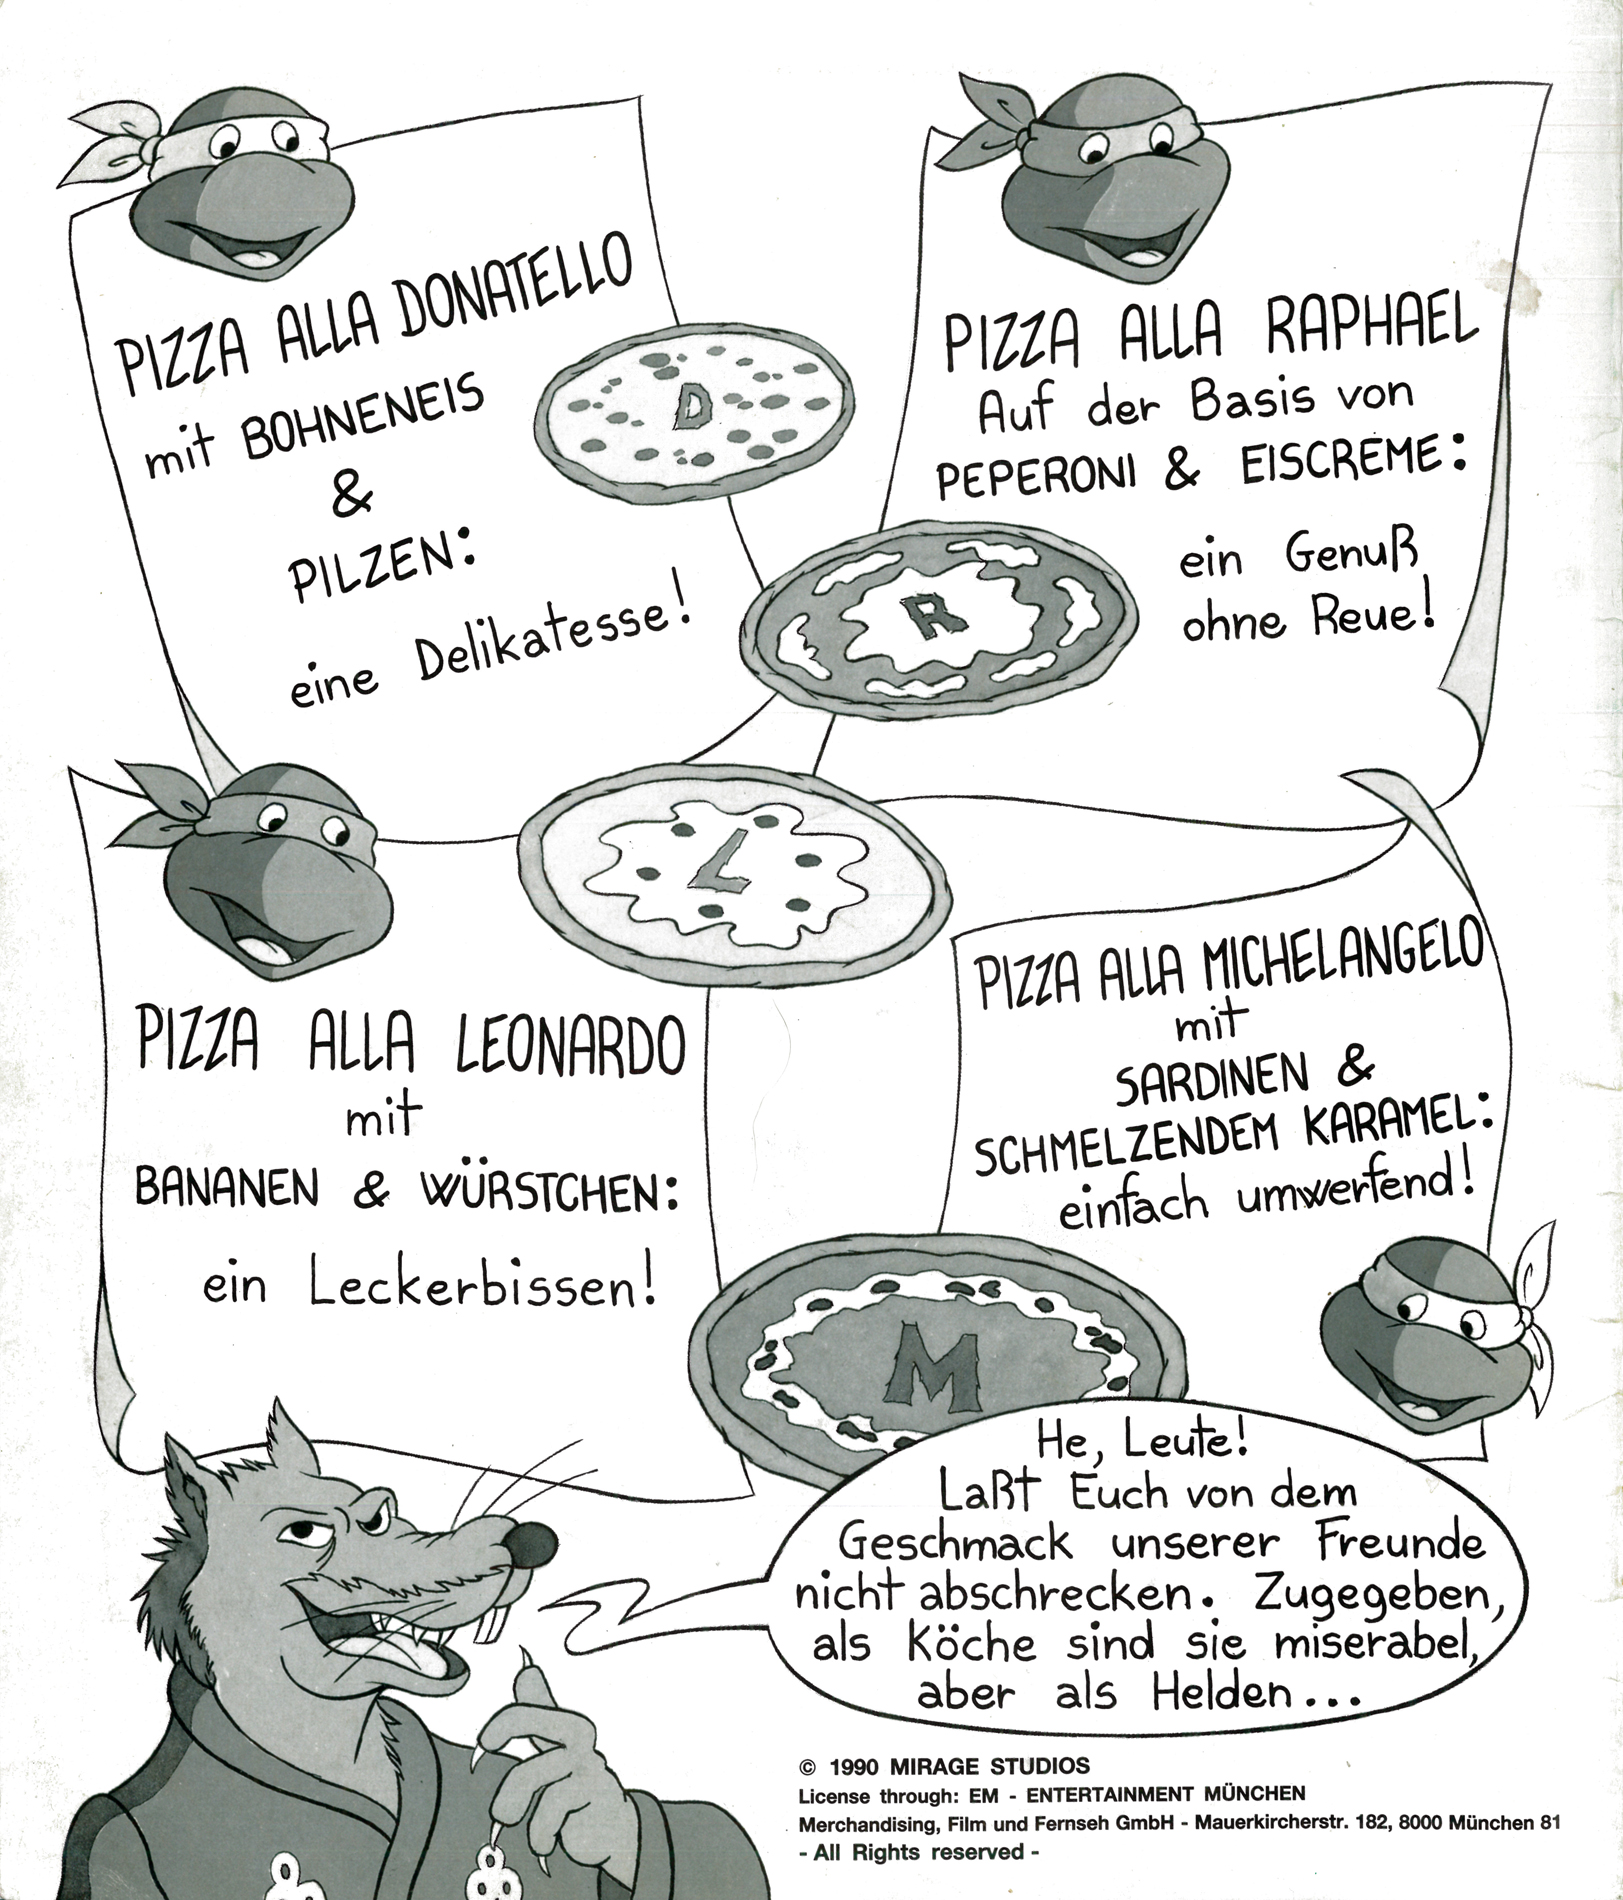 PIZZA ALLA DONATELLO
mit BOHNENEIS
&
PILZEN:
eine Delikatesse!
D
PIZZA ALLA RAPHAEL
Auf der Basis von
PEPERONI & EISCREME:
ein Genuß
ohne Reue!
R
L
PIZZA ALLA LEONARDO
mit
BANANEN & WÜRSTCHEN:
ein Leckerbissen!
PIZZA ALLA MICHELANGELO
mit
SARDINEN &
SCHMELZENDEM KARAMEL:
einfach umwerfend!
M
He, Leute!
Laßt Euch von dem
Geschmack unserer Freunde
nicht abschrecken. Zugegeben,
als Köche sind sie miserabel,
aber als Helden...
© 1990 MIRAGE STUDIOS
License through: EM - ENTERTAINMENT MÜNCHEN
Merchandising, Film und Fernseh GmbH - Mauerkircherstr. 182, 8000 München 81
- All Rights reserved -